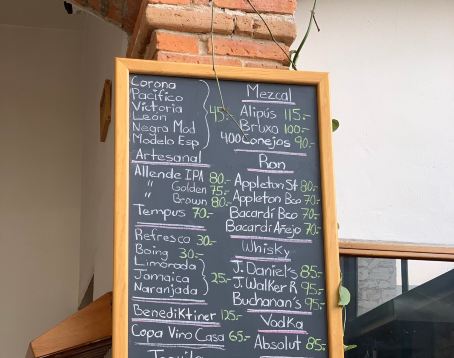 Corona
Pacífico
Victoria
León
Negra Mod
Modelo Esp
45.-
Artesanal
Allende IPA 80.-
" Golden 75.-
" Brown 80.-
Tempus 70.-
Refresco 30.-
Boing 30.-
Limonada
Jamaica
Naranjada
25.-
Benediktiner 125.-
Copa Vino Casa 65.-
Tequila
Mezcal
Alipús 115.-
Bruxo 100.-
400 Conejos 90.-
Ron
Appleton St 80.-
Appleton Bco 70.-
Bacardí Bco 70.-
Bacardí Añejo 70.-
Whisky
J. Daniel's 85.-
J. Walker R 95.-
Buchanan's 95.-
Vodka
Absolut 85.-